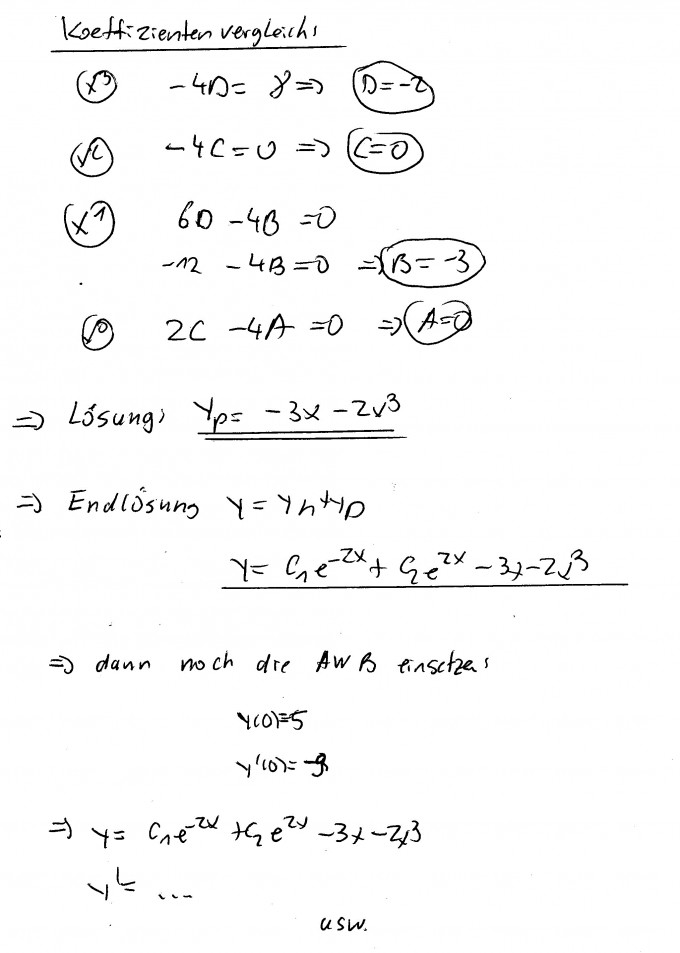 Koeffizientenvergleich:
x³ -4D = 8 => D=-2
x² -4C=0 => C=0
x¹ 6D -4B =0
-12 -4B=0 => B=-3
x⁰ 2C -4A =0 => A=0
=> Lösung: yp= -3x -2x³
=> Endlösung y = yh+yp
y= C₁e^-2x + C₂e^2x -3x-2x³
=> dann noch die AWB einsetzen:
y(0)=5
=> y= C₁e^-2x +C₂e^2x -3x-2x³
y'= ...
usw.